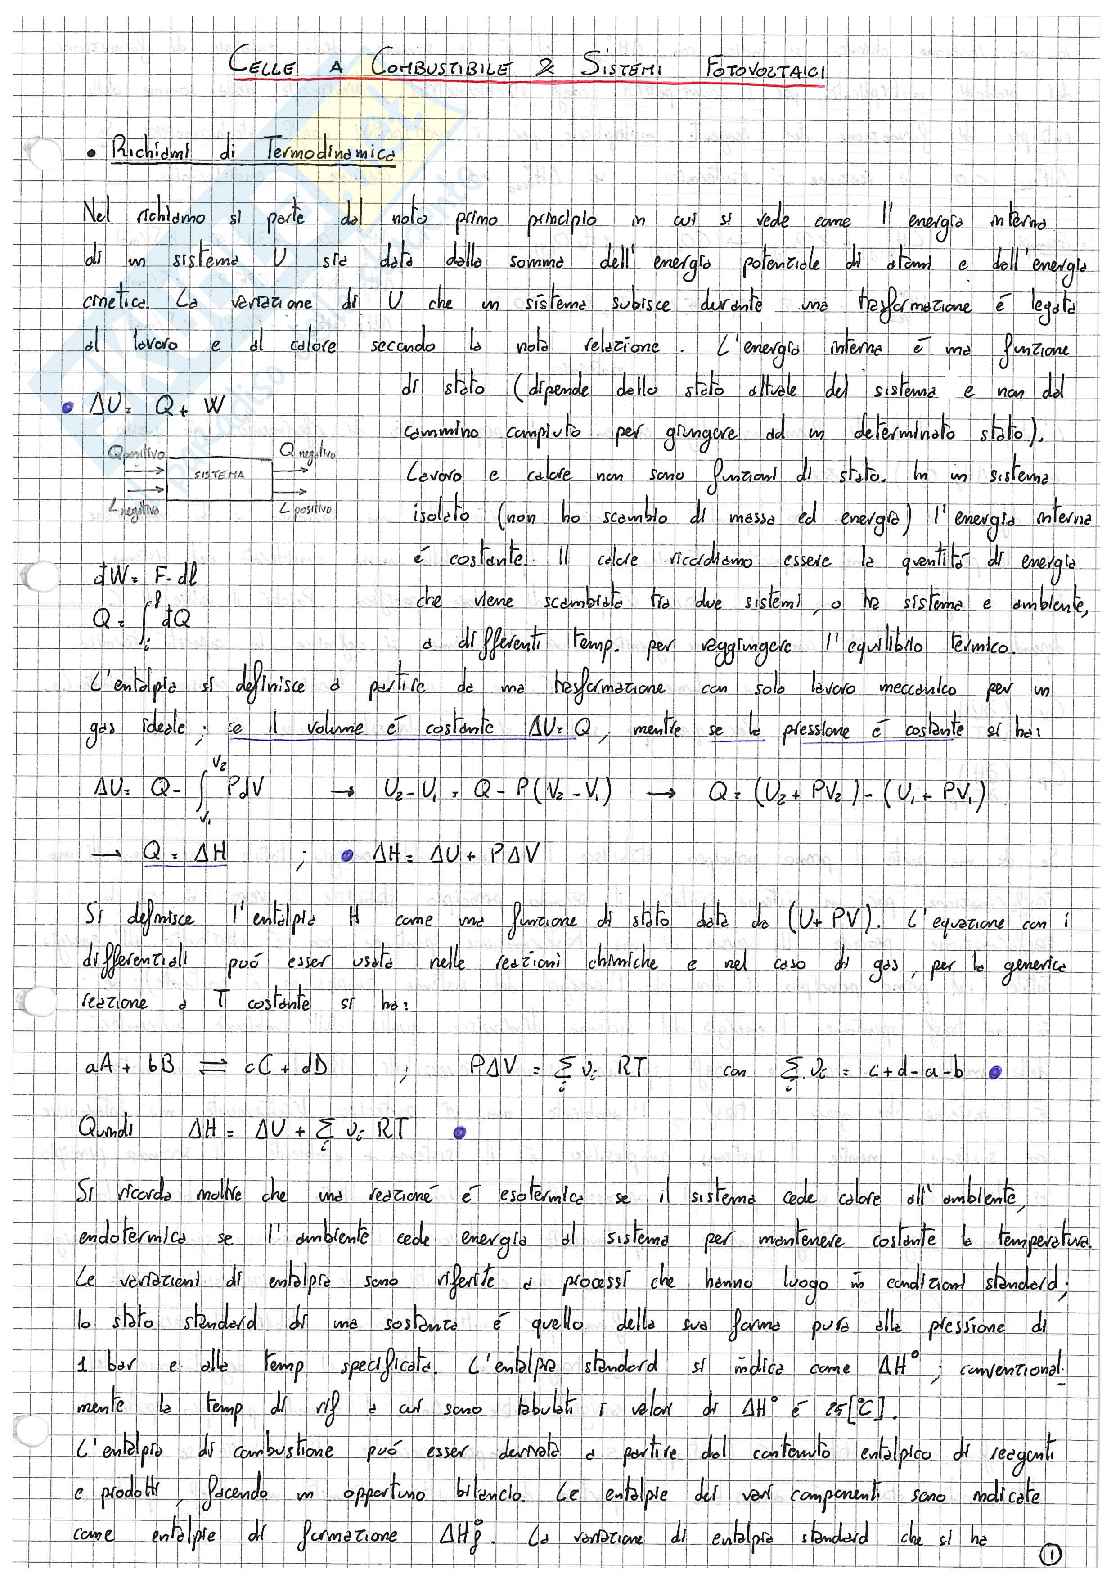 CELLE A COMBUSTIBILE & SISTEMI FOTOVOLTAICI
• Richiami di Termodinamica
Nel richiamo si parte dal noto primo principio in cui si vede come l'energia interna
di un sistema U sia data dalla somma dell'energia potenziale di atomi e dall'energia
cinetica. La variazione di U che un sistema subisce durante una trasformazione è legata
al lavoro e al calore secondo la nota relazione. L'energia interna è una funzione
di stato (dipende dallo stato attuale del sistema e non dal
• ΔU = Q + W
cammino compiuto per giungere ad un determinato stato).
Q positivo Q negativo
SISTEMA
L negativo L positivo
Lavoro e calore non sono funzioni di stato. In un sistema
isolato (non ho scambio di massa ed energia) l'energia interna
è costante. Il calore ricordiamo essere la quantità di energia
đW = F · dl
che viene scambiata tra due sistemi, o tra sistema e ambiente,
Q = ∫ᵢᶠ đQ
a differenti temp. per raggiungere l'equilibrio termico.
L'entalpia si definisce a partire da una trasformazione con solo lavoro meccanico per un
gas ideale; se il volume è costante ΔU = Q, mentre se la pressione è costante si ha:
ΔU = Q - ∫_V₁^V₂ PdV → U₂ - U₁ = Q - P(V₂ - V₁) → Q = (U₂ + PV₂) - (U₁ + PV₁)
→ Q = ΔH ; • ΔH = ΔU + PΔV
Si definisce l'entalpia H come una funzione di stato data da (U + PV). L'equazione con i
differenziali può esser usata nelle reazioni chimiche e nel caso di gas, per la generica
reazione a T costante si ha:
aA + bB ⇌ cC + dD ; PΔV = Σᵢ νᵢ RT con Σᵢ νᵢ = c+d-a-b •
Quindi ΔH = ΔU + Σᵢ νᵢ RT •
Si ricorda inoltre che una reazione è esotermica se il sistema cede calore all'ambiente,
endotermica se l'ambiente cede energia al sistema per mantenere costante la temperatura.
Le variazioni di entalpia sono riferite a processi che hanno luogo in condizioni standard;
lo stato standard di una sostanza è quello della sua forma pura alla pressione di
1 bar e alla temp specificata. L'entalpia standard si indica come ΔH°; convenzional-
mente la temp di rif a cui sono tabulati i valori di ΔH° è 25[°C].
L'entalpia di combustione può esser derivata a partire dal contenuto entalpico di reagenti
e prodotti, facendo un opportuno bilancio. Le entalpie dei vari componenti sono indicate
come entalpie di formazione ΔH°f. La variazione di entalpia standard che si ha
1